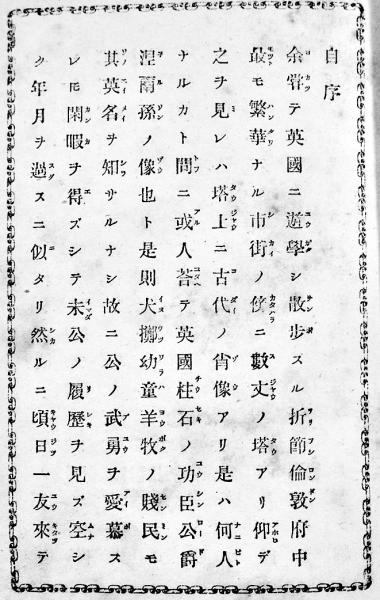 自序
余甞テ英國ニ遊學シ散歩スル折節倫敦府中
最モ繁華ナル市街ノ傍ニ數丈ノ塔アリ仰デ
之ヲ見レハ塔上ニ古代ノ肖像アリ是ハ何人
ナルカト問ニ或人荅テ英國柱石ノ功臣公爵
涅爾孫ノ像也ト是則犬擲幼童羊牧ノ賤民モ
其英名ヲ知サルナシ故ニ公ノ武勇ヲ愛慕ス
レ𪜈閑暇ヲ得ズシテ未公ノ履歴ヲ見ズ空シ
ク年月ヲ過スニ似タリ然ルニ頃日一友來テ